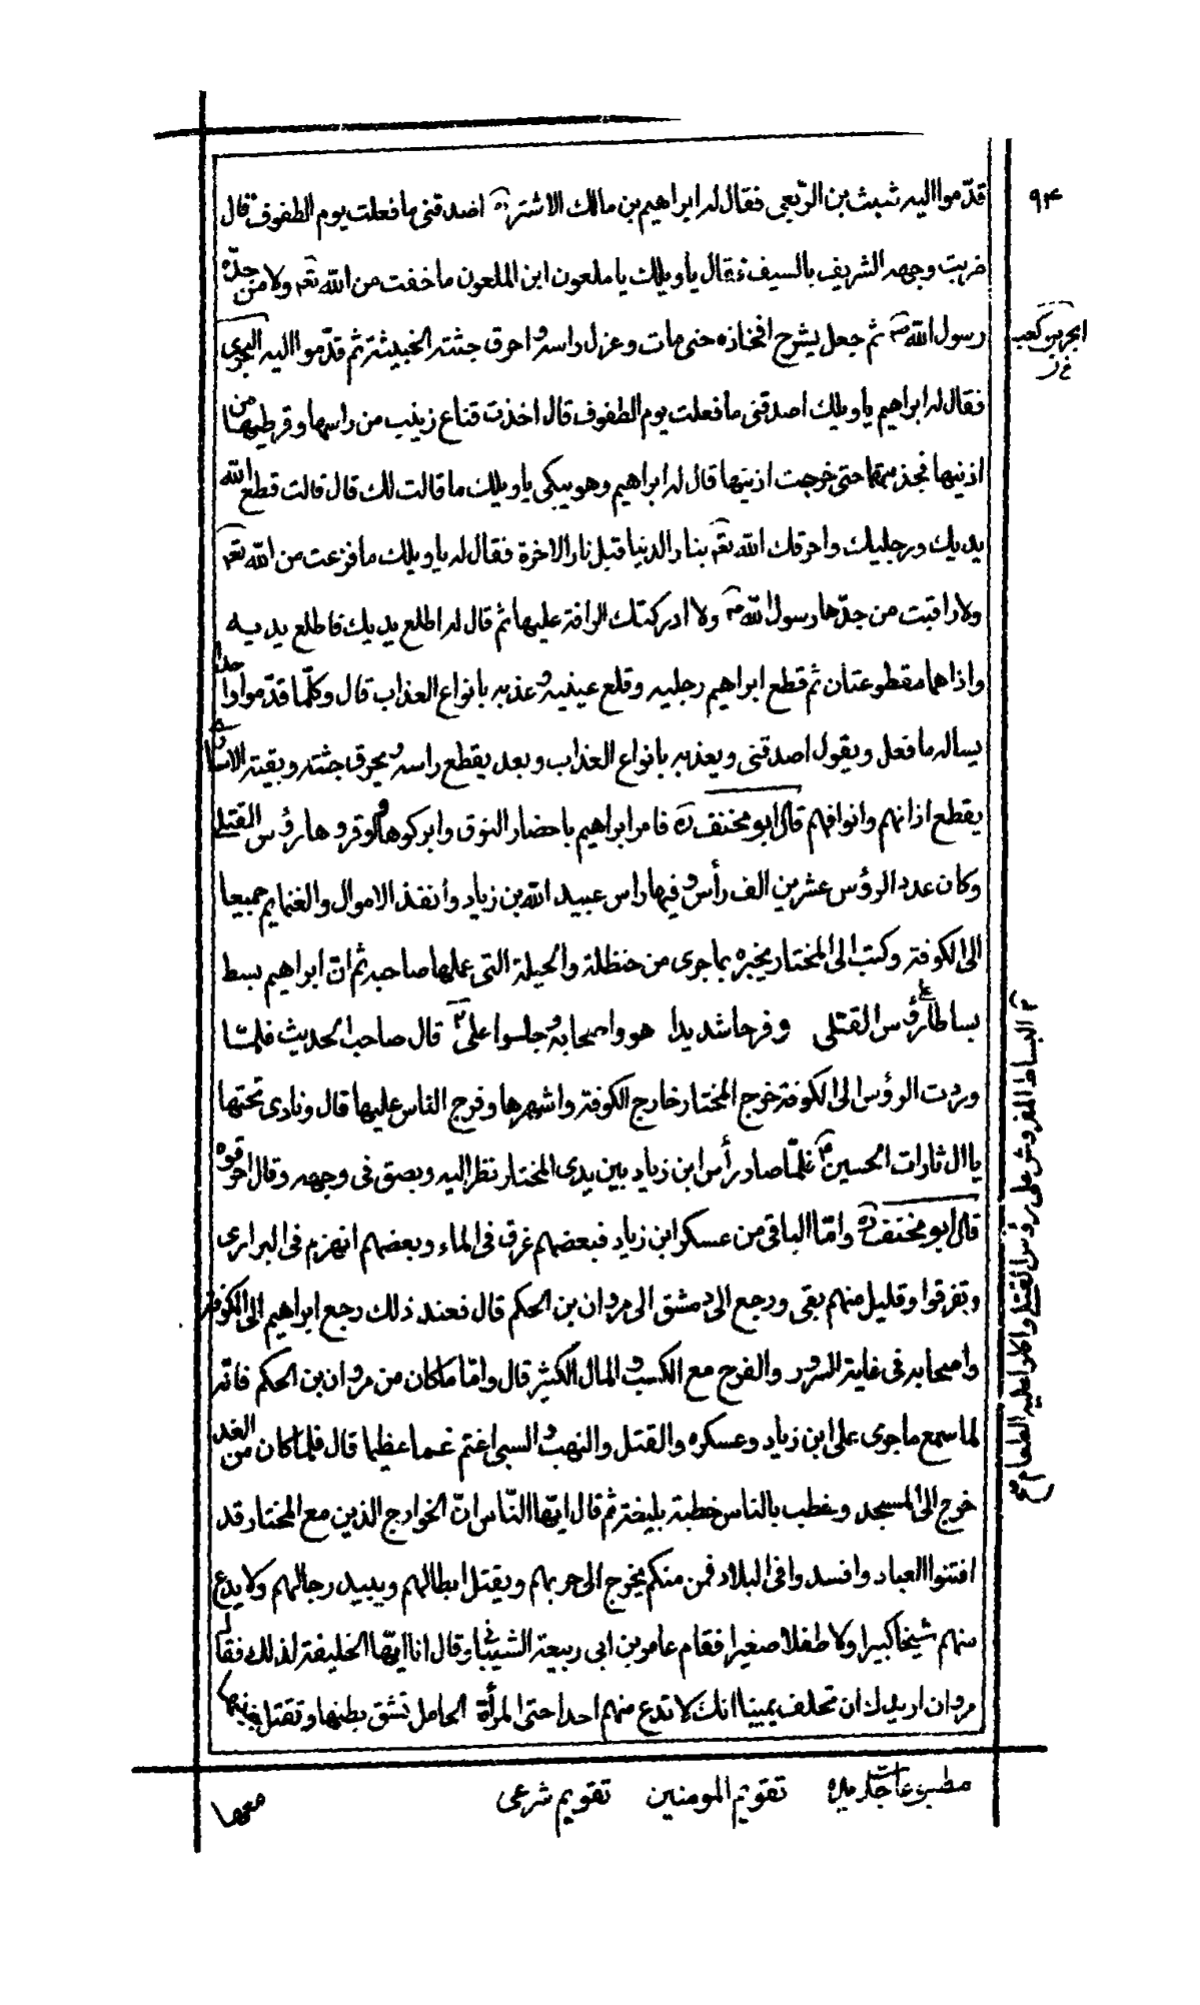 ٩٤
قدّموا اليه شبث بن الرّبعى فقال له ابراهيم بن مالك الاشتر ره اصدقنى ما فعلت يوم الطفوف قال
ضربت وجهه الشريف بالسيف فقال ياويلك يا ملعون ابن الملعون ما خفت من الله تعم ولا من جدّه
رسول الله ص ثم جعل يشرح افخاذه حتى مات وعزل راسه واحرق جثته الخبيثة ثم قدّموا اليه
ابجر بن كعب
خ ل
فقال له ابراهيم ياويلك اصدقنى ما فعلت يوم الطفوف قال اخذت قناع زينب من راسها وقرطيها من
اذنيها فجذبتهما حتى خرجت اذنيها قال له ابراهيم وهو يبكى ياويلك ما قالت لك قال قالت قطع الله
يديك ورجليك واحرقك الله تعم بنار الدنيا قبل نار الاخرة فقال له ياويلك ما فزعت من الله تعم
ولا راقبت من جدّها رسول الله ص ولا ادركتك الرافة عليها ثم قال له اطلع يديك فاطلع يديه
واذا هما مقطوعتان ثم قطع ابراهيم رجليه وقلع عينيه وعذبه بانواع العذاب قال وكلّما قدّموا واحدا
يساله ما فعل ويقول اصدقنى ويعذبه بانواع العذاب وبعد يقطع راسه ويحرق جثته وبقية
يقطع اذانهم وانوافهم قال ابو مخنف ره فامر ابراهيم باحضار النوق وابركوها واوقروها رؤس القتلى
وكان عدد الرؤس عشرين الف رأس وفيها راس عبيد الله بن زياد وأنفذ الاموال والغنايم جميعا
الى الكوفة وكتب الى المختار يخبره بماجرى من حنظلة والحيلة التى عملها صاحبه ثم انّ ابراهيم بسط
بساطا على رؤس القتلى وفرحا شديدا هو واصحابه وجلسوا على ٢ قال صاحب الحديث فلمّا
٢ البساط المفروش على رؤس القتلى واكلوا عليه الطعام
وردت الرؤس الى الكوفة خرج المختار خارج الكوفة واشهرها وفرج الناس عليها قال ونادى تحتها
يا ال ثارات الحسين ع فلمّا صار رأس ابن زياد بين يدى المختار نظر اليه وبصق فى وجهه وقال احرقوه
قال ابو مخنف ره وامّا الباقى من عسكر ابن زياد فبعضهم غرق فى الماء وبعضهم انهزم فى البرارى
وتفرقوا وقليل منهم بقى ورجع الى دمشق الى مروان بن الحكم قال فعند ذلك رجع ابراهيم الى الكوفة
واصحابه فى غاية السرور والفرح مع الكسب والمال الكثير قال وامّا ماكان من مروان بن الحكم فانّه
لما سمع ماجرى على ابن زياد وعسكره والقتل والنهب والسبى اغتم غما عظيما قال فلمّا كان من الغد
خرج الى المسجد وخطب بالناس خطبة بليغة ثم قال ايّها النّاس انّ الخوارج الذين مع المختار قد
افتنوا العباد وافسدوا فى البلاد فمن منكم يخرج الى حربهم ويقتل ابطالهم ويبيد رجالهم ولا يدع
منهم شيخا كبيرا ولا طفلا صغيرا فقام عامر بن ابى ربيعة الشيبانى وقال انا ايّها الخليفة لذلك فقال له
مروان اريدك ان تحلف يمينا انك لا تدع منهم احدا حتى المرأة الحامل تشق بطنها وتقتل
تقويم المومنين تقويم شرعى